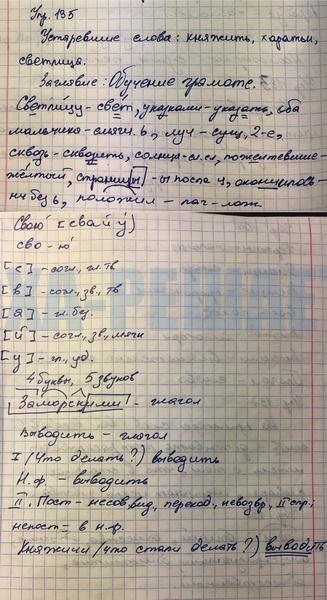 Упр. 135
Устаревшие слова: княжить, харатьи,
светлица.
Заглавие: Обучение грамоте.
Светлицу-свет, указками-указать, оба
мальчика-смягч. ь, луч - сущ, 2-е,
сквозь - сквозить, солнца-сл.сл, пожелтевшие-
жёлтый, страницы - ы после ц,
нь без ь, положил - лаг-лож.
Свою [свайу]
сво - ю
[с] - согл., гл. тв
[в] - согл., зв., тв
[а] - гл. без.
[й] - согл., зв., мягк
[у] - гл., уд.
4 буквы, 5 звуков
Заморскими - глагол
Выводить - глагол
I (Что делать?) выводить
Н.ф. - выводить
II. Пост - несов. вид, переход., невозвр., II спр.;
непост - в н.ф.
Княжичи (что стали делать?) выводить